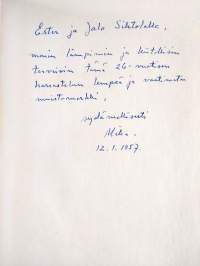 Ester ja Jalo Sihtolalle,
monin lämpimin ja kiitollisin
terveisin tämä 26-vuotisen
harrastelun lempeä ja vaatimaton
muistomerkki,
sydämellisesti
Mika.
12.1.1957.